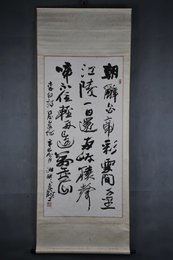 朝辭白帝彩雲間千里
江陵一日還兩岸猿聲
啼不住輕舟已過萬重山
李白詩